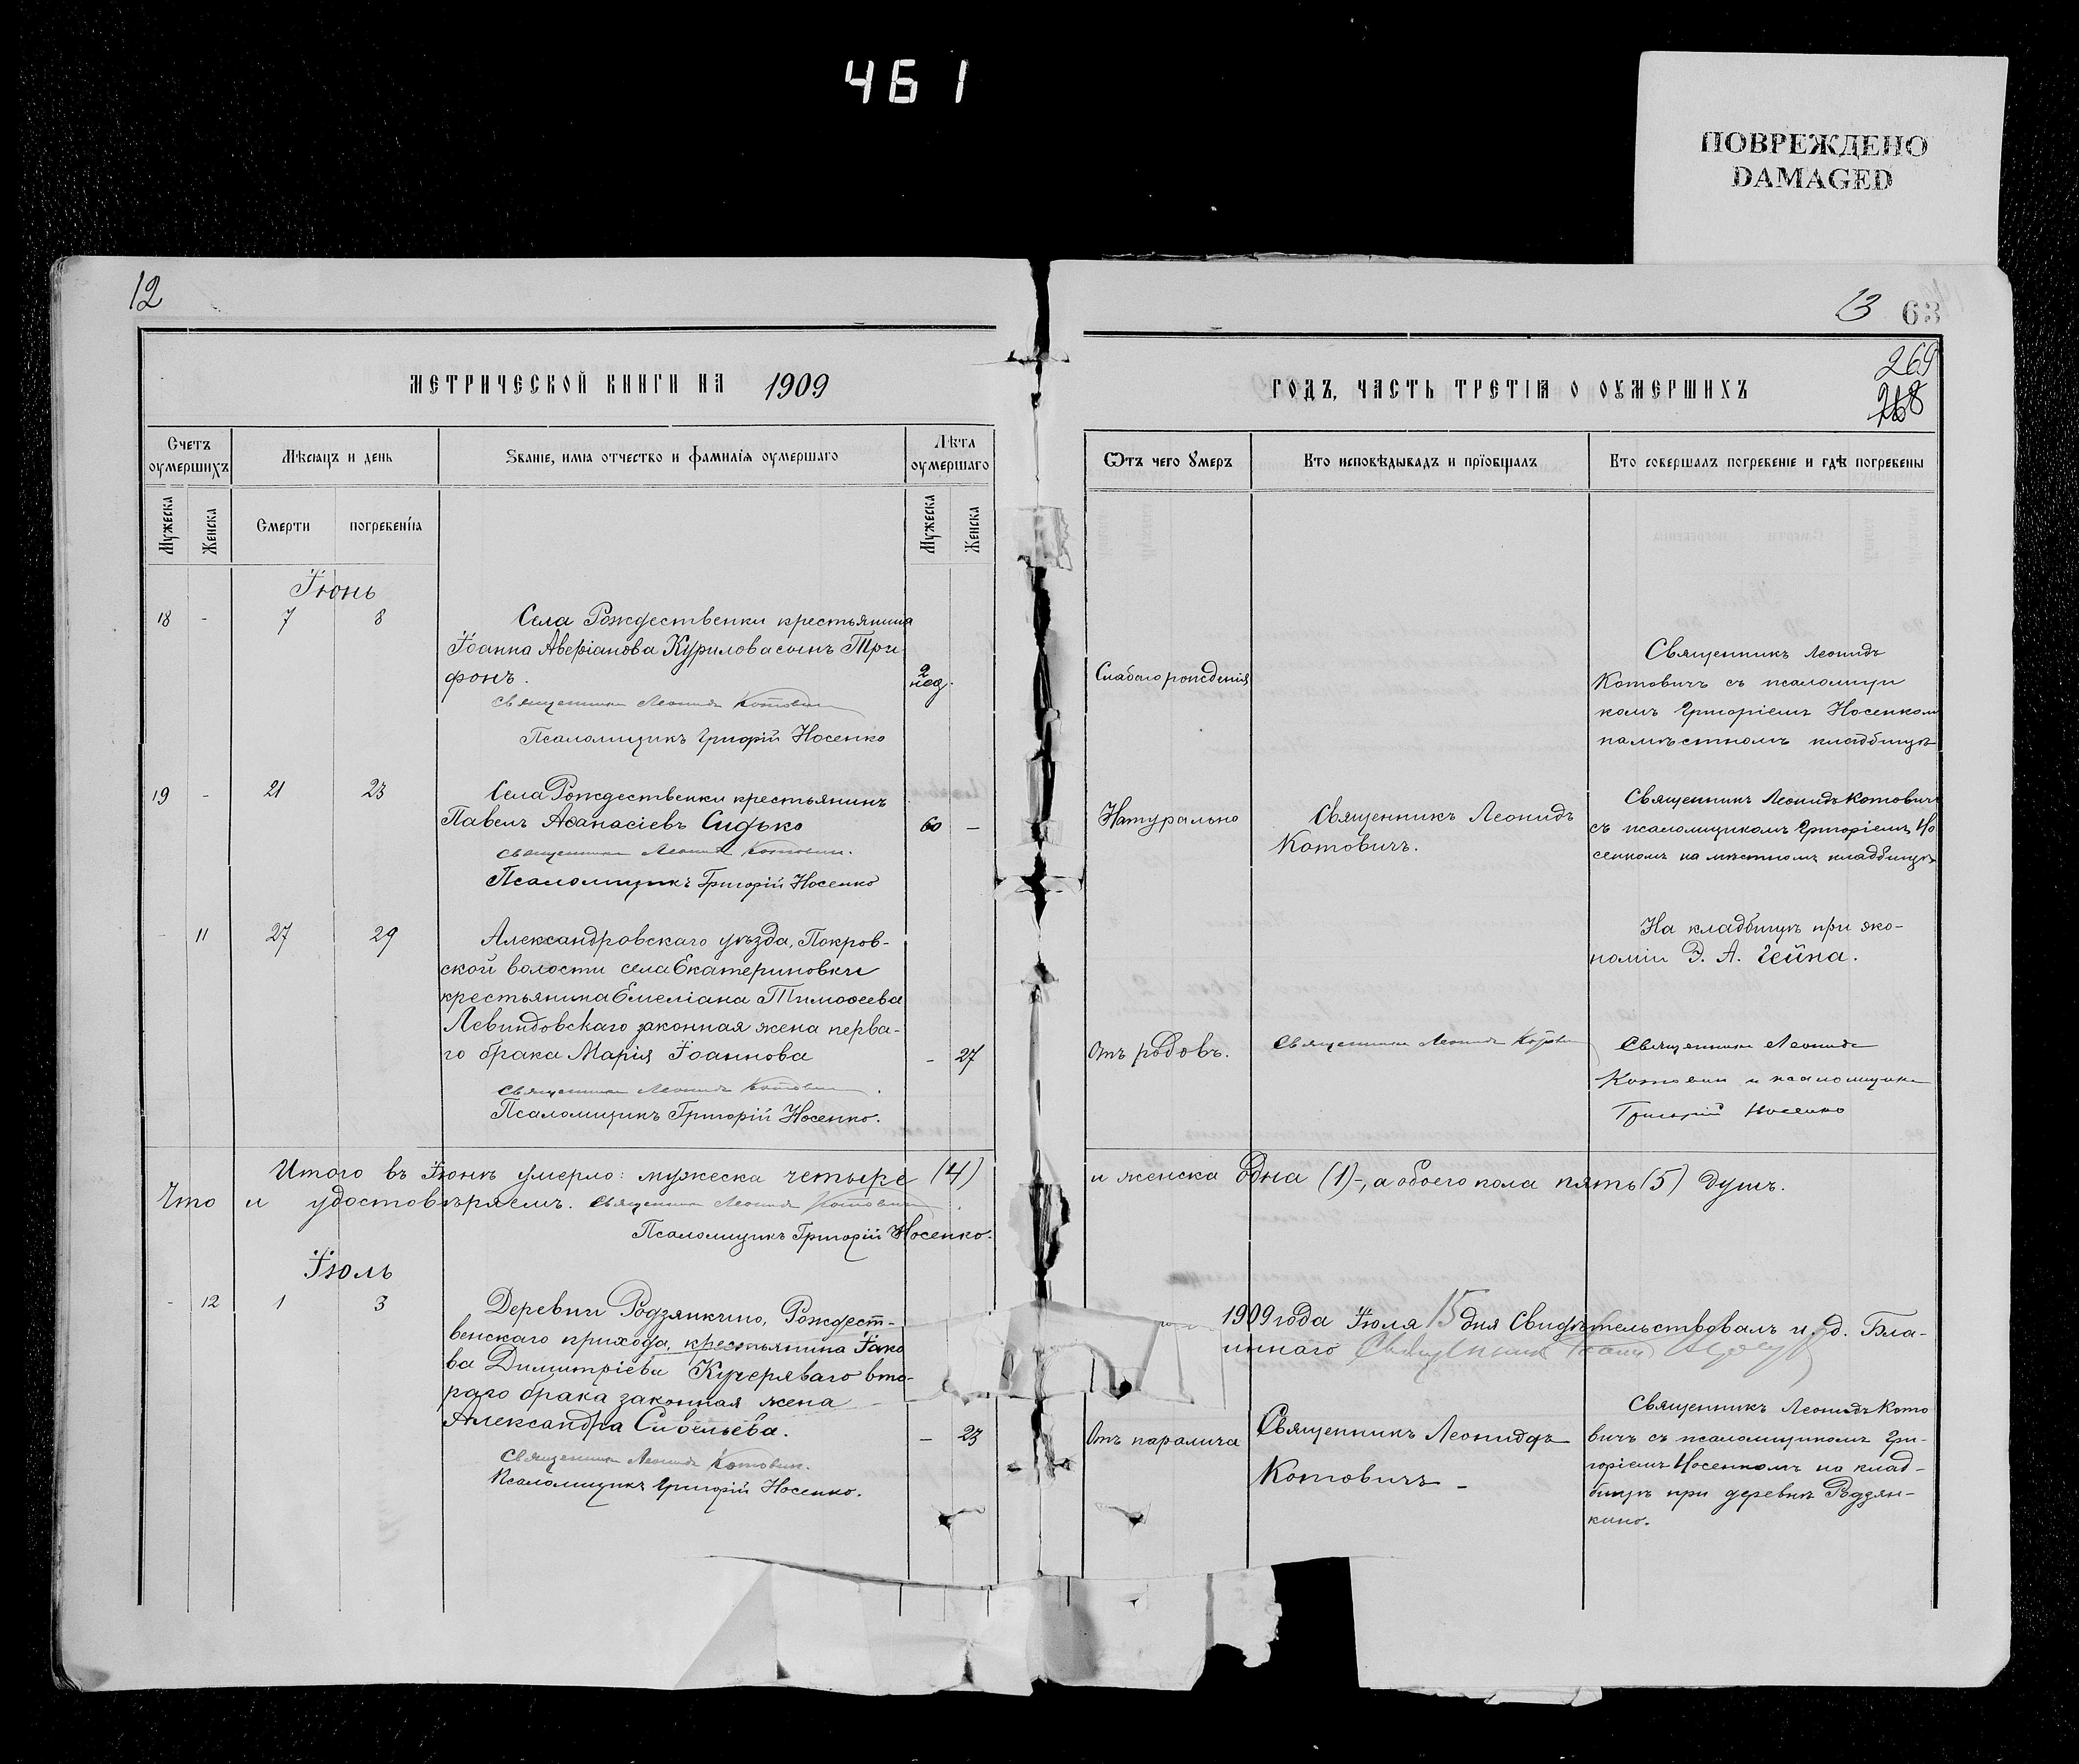 461
ПОВРЕЖДЕНО
DAMAGED
12
МЕТРИЧЕСКОЙ КНИГИ НА 1909
Счетъ оумершихъ
Мѣсяцъ и день
Званіе, имя отчество и фамилія оумершаго
Лѣта оумершаго
Мужеска
Женска
Смерти
погребенія
Мужеска
Женска
Іюнь
18 - 7 8
Села Рождественки крестьянина
Іоанна Аверіанова Курилова сынъ Три
фонъ.
2 нед.
Священникъ Леонидъ Котовичъ
Псаломщикъ Григорій Носенко
19 - 21 23
Села Рождественки крестьянинъ
Павелъ Аѳанасіевъ Сидько
60 -
Священникъ Леонидъ Котовичъ.
Псаломщикъ Григорій Носенко
- 11 27 29
Александровскаго уѣзда, Покров-
ской волости села Екатериновки
крестьянина Емеліана Тимоѳеева
Левиндовскаго законная жена перва-
го брака Марія Іоаннова
- 27
Священникъ Леонидъ Котовичъ.
Псаломщикъ Григорій Носенко.
Итого въ Іюнѣ умерло: мужеска четыре (4)
Что и удостовѣряемъ. Священникъ Леонидъ Котовичъ
Псаломщикъ Григорій Носенко.
Іюль
- 12 1 3
Деревни Родзянкино, Рождест-
венскаго прихода, крестьянина Іако
ва Димитріева Кучеряваго вто-
раго брака законная жена
Александра Савельева.
- 23
Священникъ Леонидъ Котовичъ.
Псаломщикъ Григорій Носенко.
13 63
269
268
ГОДЪ, ЧАСТЬ ТРЕТІЯ О ОУМЕРШИХЪ
Ѿтъ чего умеръ
Кто исповѣдывалъ и пріобщалъ
Кто совершалъ погребеніе и гдѣ погребены
Слабаго рожденія
Священникъ Леонидъ
Котовичъ съ псаломщи
комъ Григоріемъ Носенкомъ
на мѣстномъ кладбищѣ
Натурально
Священникъ Леонидъ
Котовичъ.
Священникъ Леонидъ Котовичъ
съ псаломщикомъ Григоріемъ Но
сенкомъ на мѣстномъ кладбищѣ
На кладбищѣ при эко-
номіи Э. А. Гейна.
Отъ родовъ.
Священникъ Леонидъ Котовичъ
Священникъ Леонидъ
Котовичъ и псаломщикъ
Григорій Носенко
и женска одна (1)-, а обоего пола пять (5) душъ.
1909 года Іюля 15 дня Свидѣтельствовалъ и. д. Бла-
иннаго Священникъ
Отъ паралича
Священникъ Леонидъ
Котовичъ -
Священникъ Леонидъ Кото
вичъ съ псаломщикомъ Гри-
горіемъ Носенкомъ на клад-
бищѣ при деревнѣ Родзян-
кино.